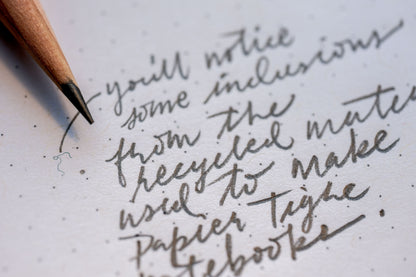 you'll notice
some inclusions
from the
recycled mater
used to make
Papier Tigre
notebooks.